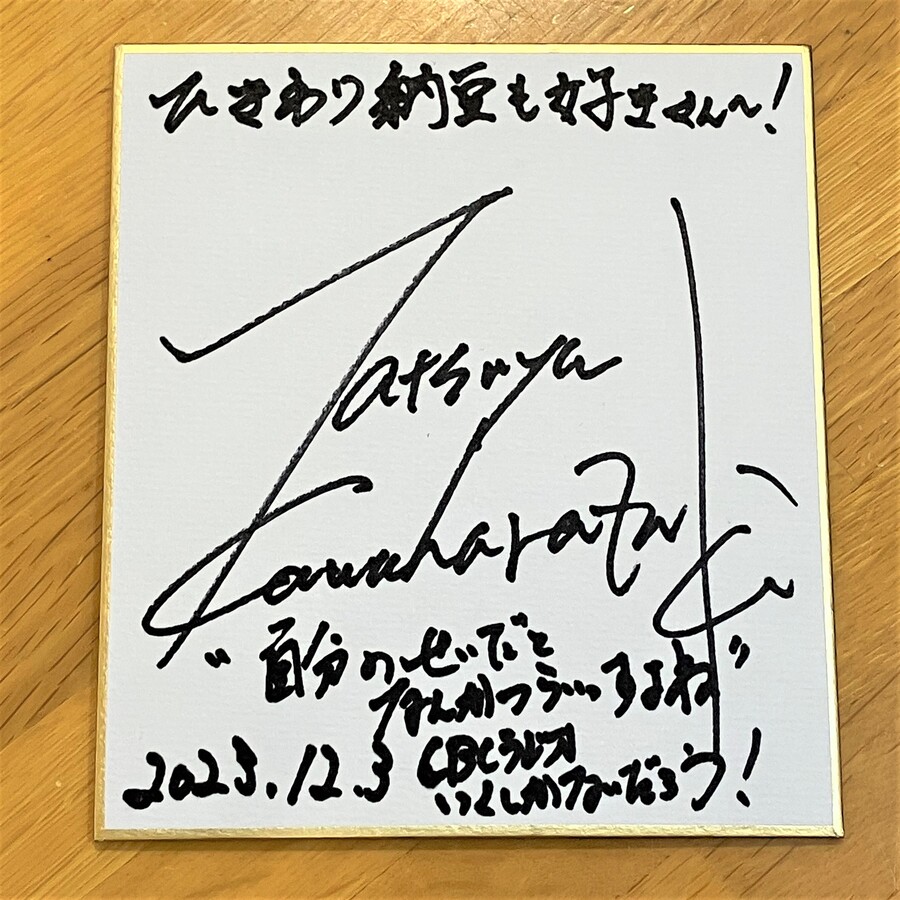 ひきわり納豆も好きさん〜!
Tatsuya
Kawaharazuki
"自分のせいだと
なんかつらいっすよね"
2023.12.3 CBCラジオ
いくしかないだろう!